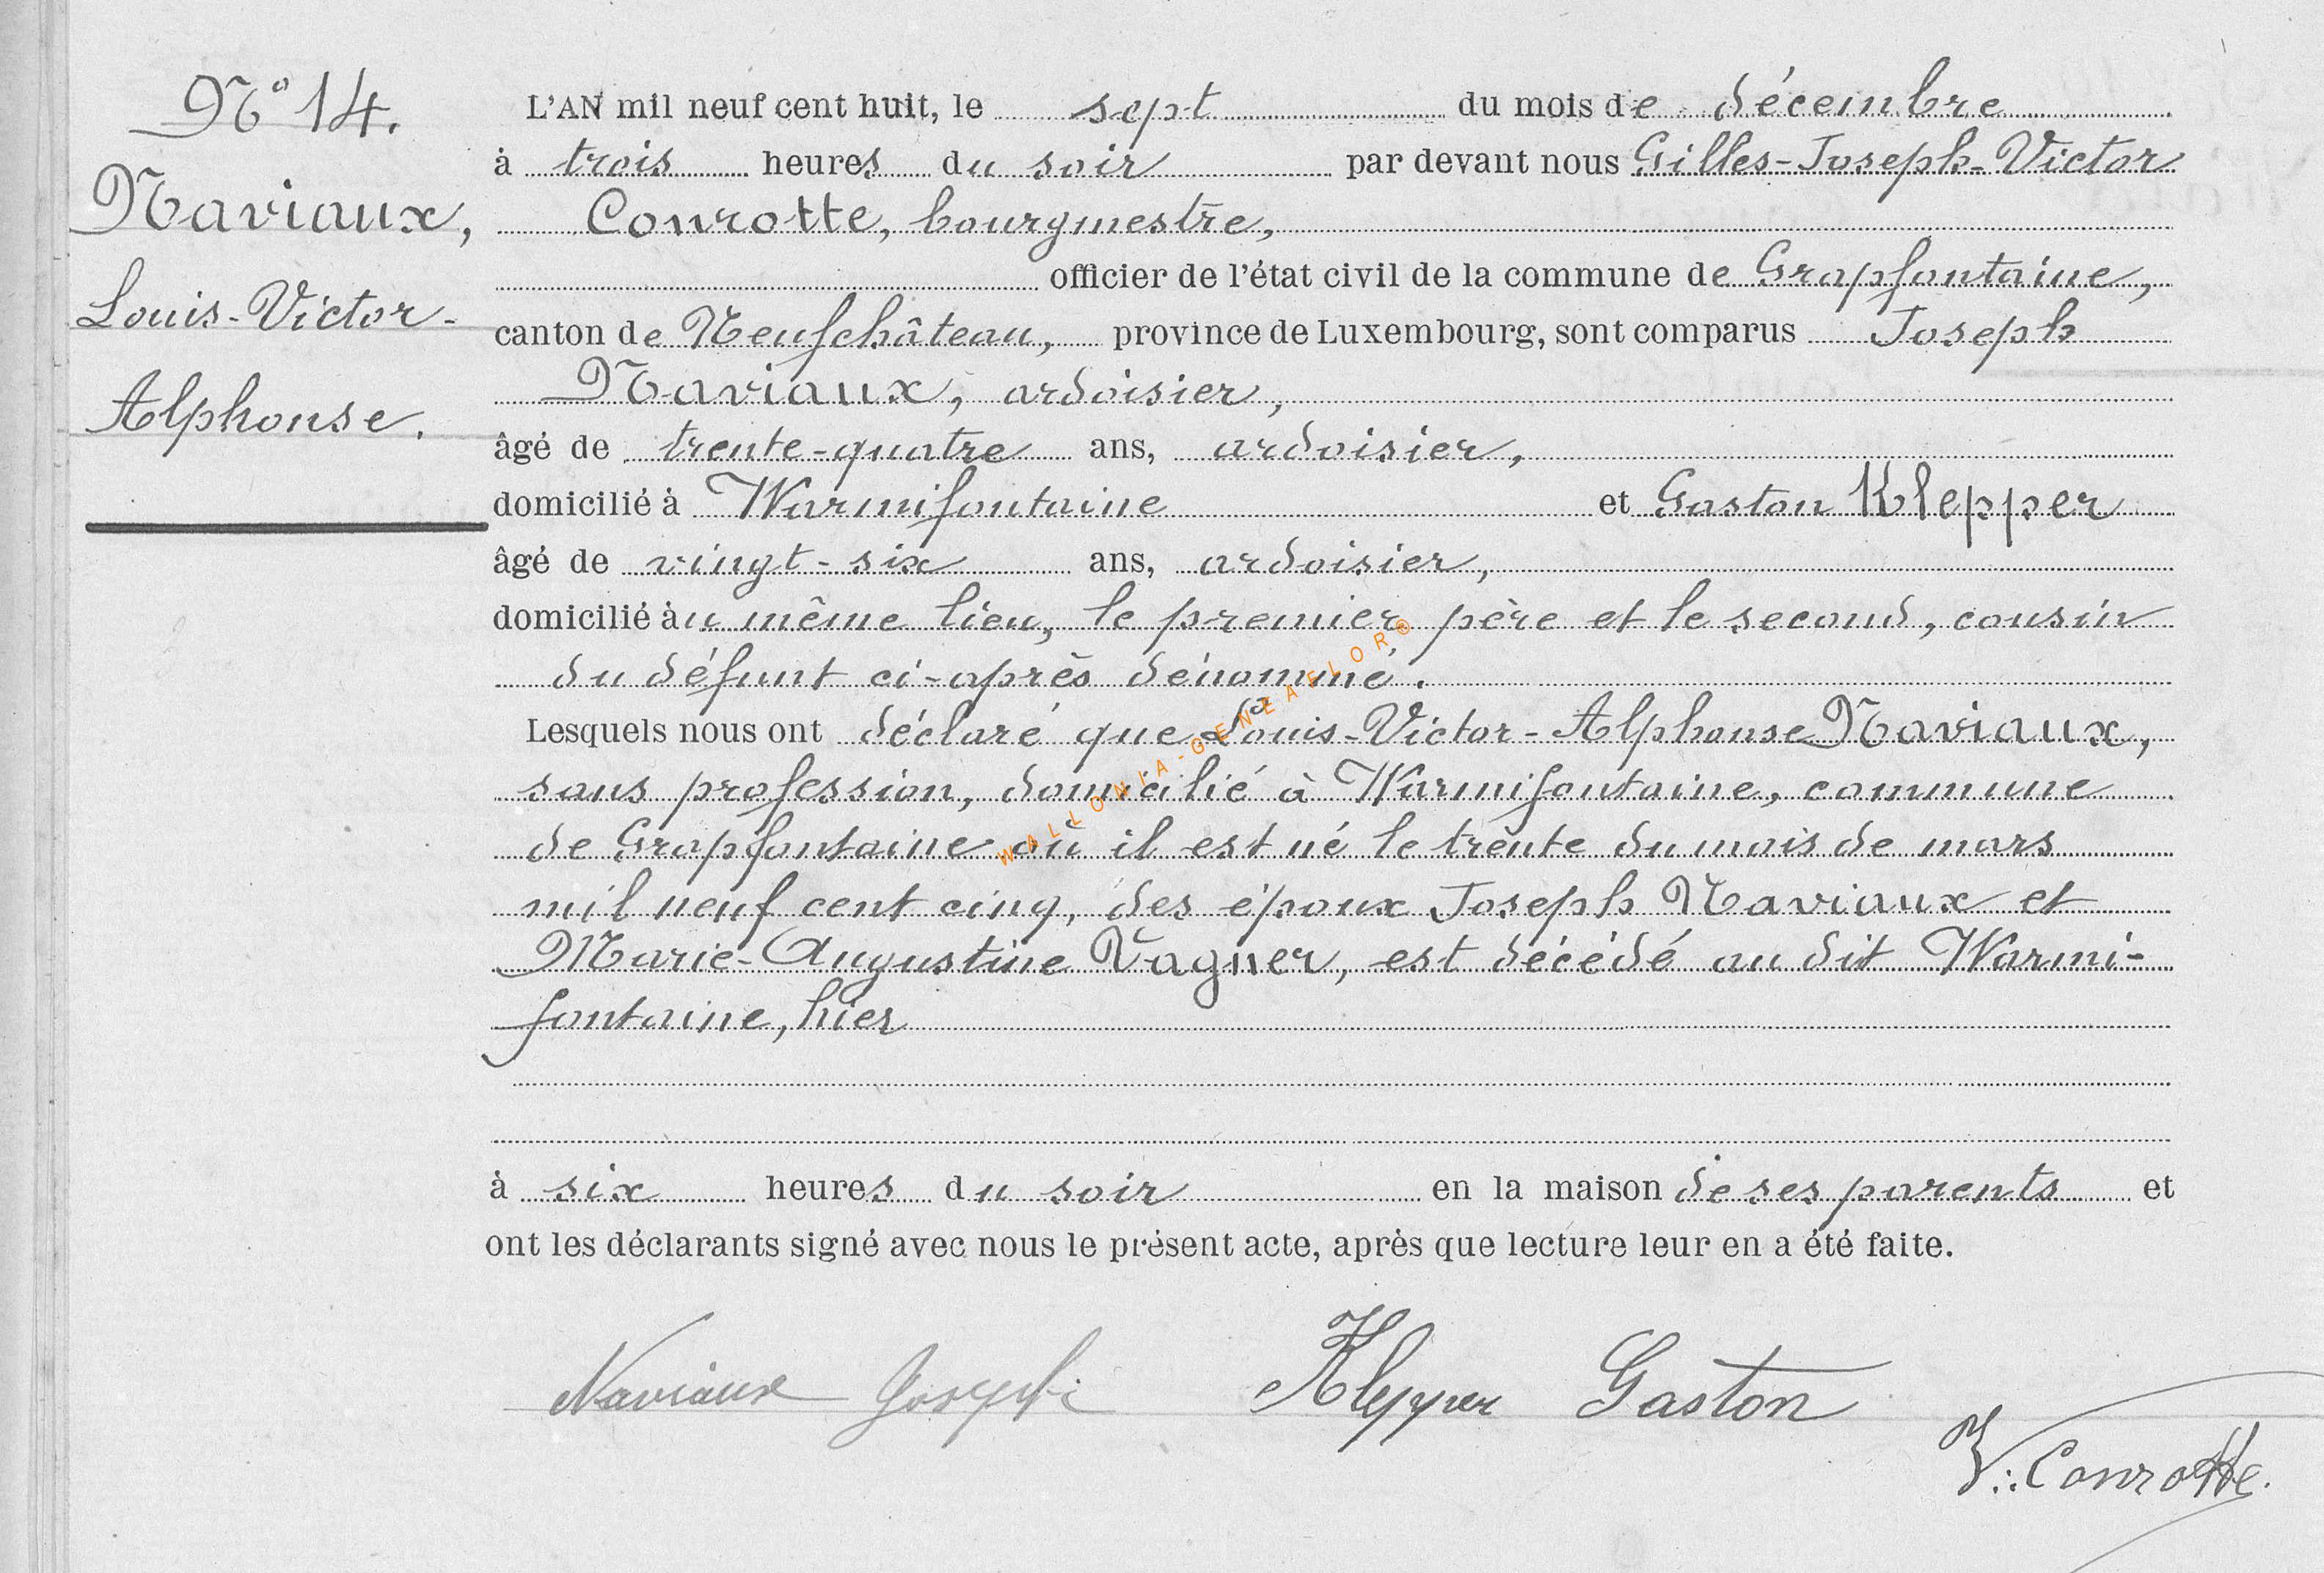 N° 14.
Naviaux,
Louis-Victor-
Alphonse.
L'AN mil neuf cent huit, le sept du mois de décembre
à trois heures du soir par devant nous Gilles-Joseph-Victor
Conrotte, bourgmestre,
officier de l'état civil de la commune de Grapfontaine,
canton de Neufchâteau, province de Luxembourg, sont comparus Joseph
Naviaux, ardoisier,
âgé de trente-quatre ans, ardoisier,
domicilié à Warmifontaine et Gaston Klepper
âgé de vingt-six ans, ardoisier,
domicilié au même lieu, le premier père et le second, cousin
du défunt ci-après dénommé.
Lesquels nous ont déclaré que Louis-Victor-Alphonse Naviaux,
sans profession, domicilié à Warmifontaine, commune
de Grapfontaine où il est né le trente du mois de mars
mil neuf cent cinq, des époux Joseph Naviaux et
Marie-Augustine Vagner, est décédé au dit Warmi-
fontaine, hier
à six heures du soir en la maison de ses parents et
ont les déclarants signé avec nous le présent acte, après que lecture leur en a été faite.
Naviaux Joseph Klepper Gaston
V. Conrotte.
WALLONIA-GENEAFLOR®